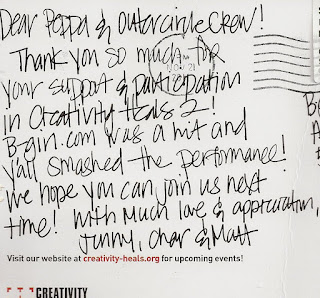 Dear Peppa & Outercircle Crew!
Thank you so much for
your support & participation
in Creativity Heals 2!
B-girl.com was a hit and
y'all smashed the performance!
We hope you can join us next
time! With Much love & appreciation,
Junny, Char & Matt
Visit our website at creativity-heals.org for upcoming events!
CREATIVITY